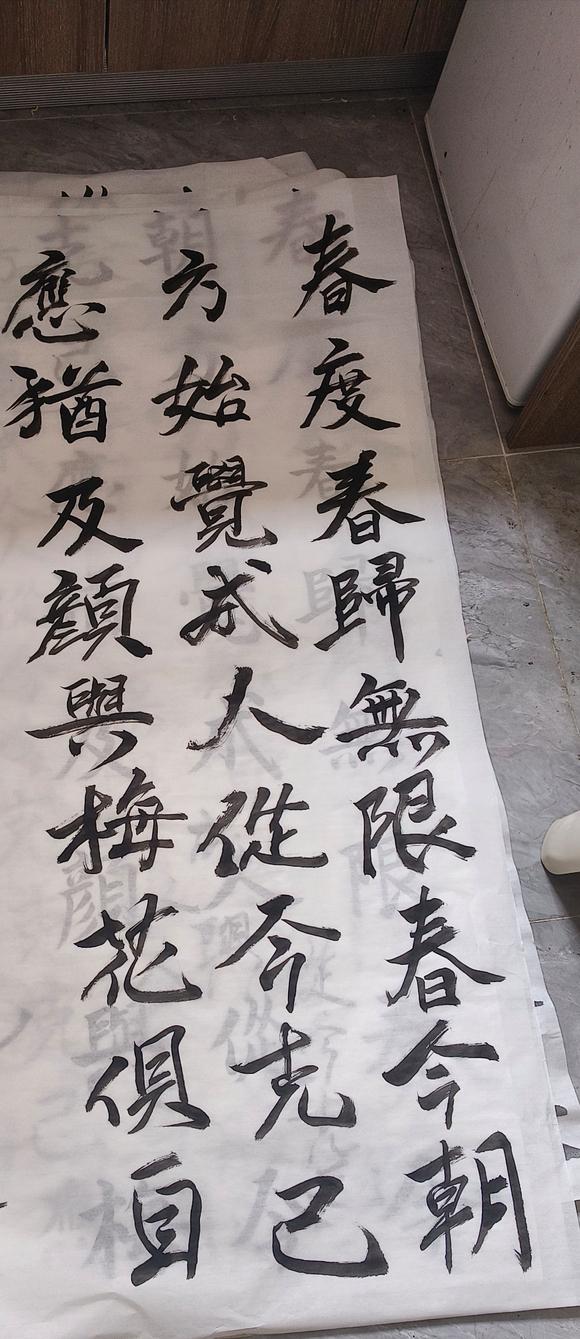 春度春歸無限春今朝
方始覺成人從今克己
應猶及顏與梅花俱自